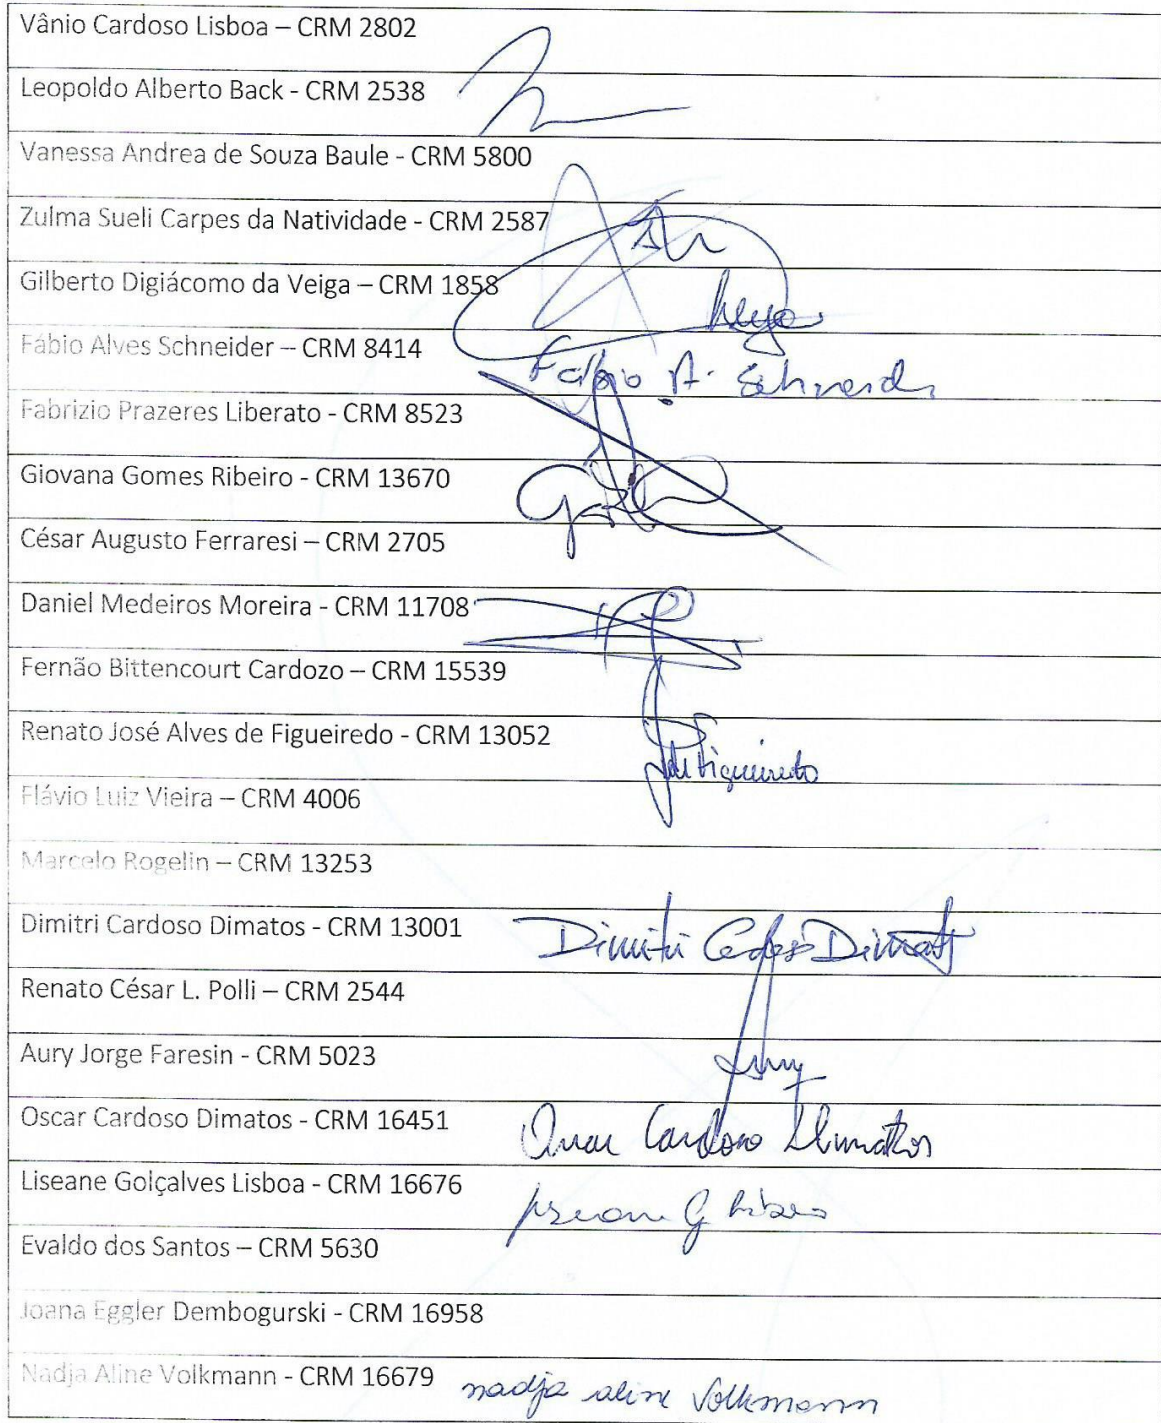 Vânio Cardoso Lisboa – CRM 2802
Leopoldo Alberto Back - CRM 2538
Vanessa Andrea de Souza Baule - CRM 5800
Zulma Sueli Carpes da Natividade - CRM 2587
Gilberto Digiácomo da Veiga – CRM 1858
Fábio Alves Schneider – CRM 8414
Fabio A. Schneider
Fabrizio Prazeres Liberato - CRM 8523
Giovana Gomes Ribeiro - CRM 13670
César Augusto Ferraresi – CRM 2705
Daniel Medeiros Moreira - CRM 11708
Fernão Bittencourt Cardozo – CRM 15539
Renato José Alves de Figueiredo - CRM 13052
Flávio Luiz Vieira – CRM 4006
Marcelo Rogelin – CRM 13253
Dimitri Cardoso Dimatos - CRM 13001 Dimitri Cardoso Dimatos
Renato César L. Polli – CRM 2544
Aury Jorge Faresin - CRM 5023
Oscar Cardoso Dimatos - CRM 16451 Oscar Cardoso Dimatos
Liseane Golçalves Lisboa - CRM 16676
Evaldo dos Santos – CRM 5630
Joana Eggler Dembogurski - CRM 16958
Nadja Aline Volkmann - CRM 16679 nadja aline Volkmann